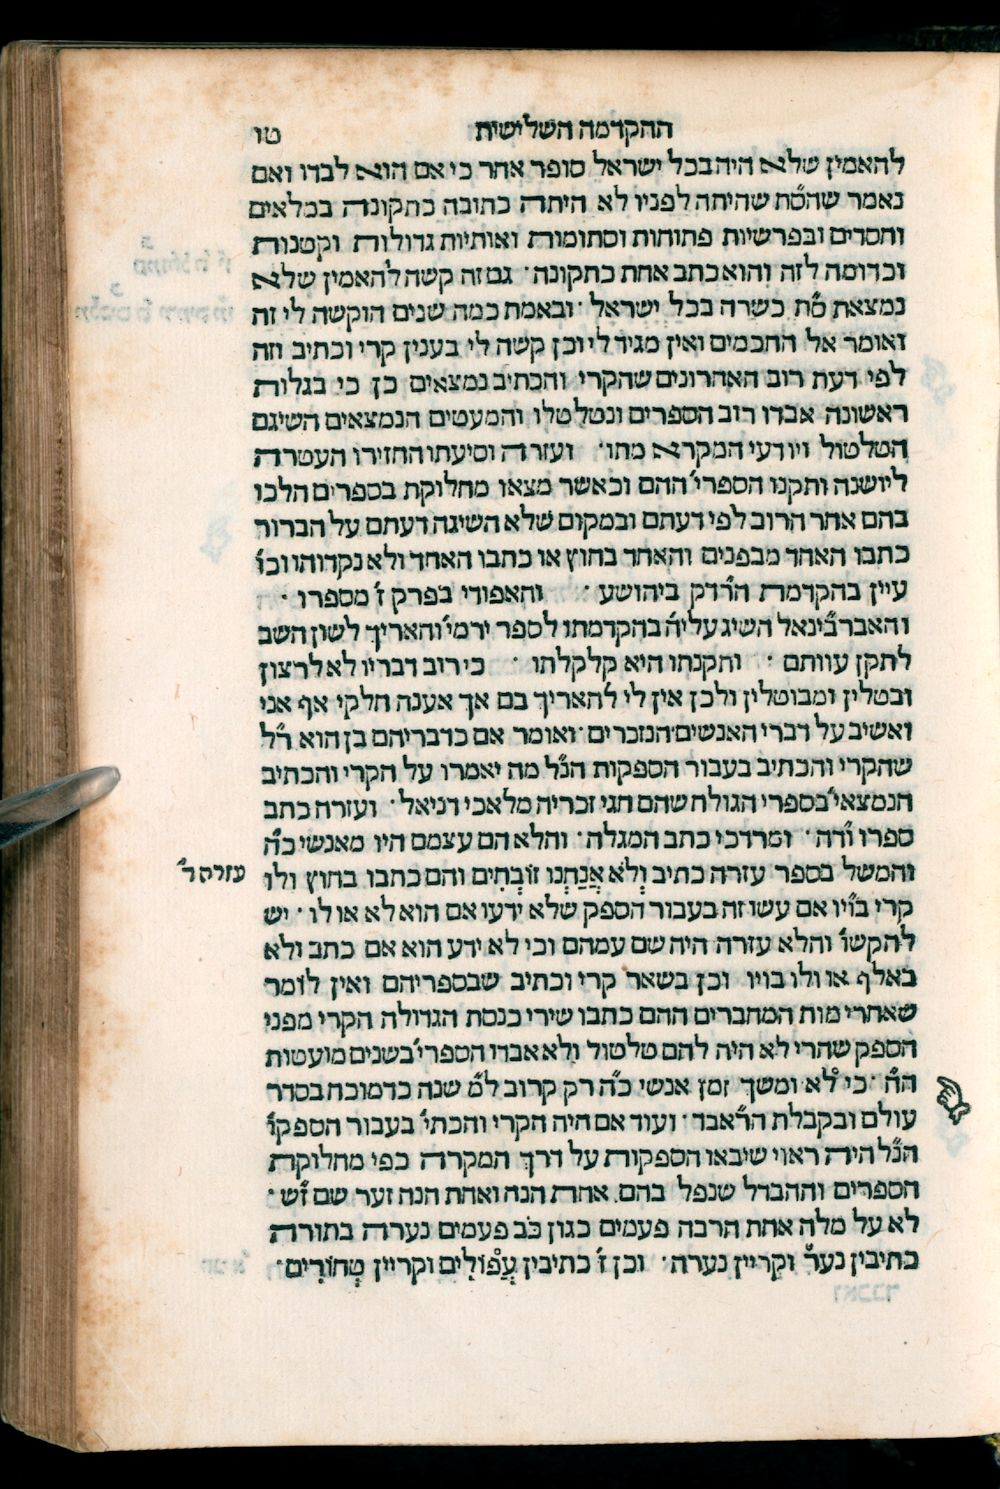 ההקדמה השלישית טו
להאמין שלא היה בכל ישראל סופר אחר כי אם הוא לבדו ואם
נאמר שהס״ת שהיתה לפניו לא היתה כתובה כתקונה במלאים
וחסרים ובפרשיות פתוחות וסתומות ואותיות גדולות וקטנות
וכדומה לזה והוא כתב אחת כתקונה · גם זה קשה להאמין שלא
נמצאת ס״ת כשרה בכל ישראל · ובאמת כמה שנים הוקשה לי זה
ואומר אל החכמים ואין מגיד לי וכן קשה לי בענין קרי וכתיב וזה
לפי דעת רוב האחרונים שהקרי והכתיב נמצאים כן כי בגלות
ראשונה אבדו רוב הספרים ונטלטלו והמעטים הנמצאים השיגם
הטלטול ויודעי המקרא מתו · ועזרה וסיעתו החזירו העטרה
ליושנה ותקנו הספרי׳ ההם וכאשר מצאו מחלוקת בספרים הלכו
בהם אחר הרוב לפי דעתם ובמקום שלא השיגה דעתם על הברור
כתבו האחד מבפנים והאחד בחוץ או כתבו האחד ולא נקדוהו וכו׳
עיין בהקדמת הר״דק ביהושע · והאפודי בפרק ז׳ מספרו ·
והאברבינאל השיג עליה׳ בהקדמתו לספר ירמי׳ והאריך לשון חשב
לתקן עוותם · ותקנתו היא קלקלתו · כי רוב דבריו לא לרצון
ובטלין ומבוטלין ולכן אין לי להאריך בם אך אענה חלקי אף אני
ואשיב על דברי האנשים הנזכרים · ואומר אם כדבריהם בן הוא ר״ל
שהקרי והכתיב בעבור הספקות הנ״ל מה יאמרו על הקרי והכתיב
הנמצאי׳ בספרי הגולה שהם חגי זכריה מלאכי דניאל · ועזרה כתב
ספרו וד״ה · ומרדכי כתב המגלה · והלא הם עצמם היו מאנשי כ״ה
והמשל בספר עזרה כתיב וְלֹא אֲנַחְנוּ זוֹבְחִים והם כתבו בחוץ ולו
עזרה ד׳
קרי בו״יו אם עשו זה בעבור הספק שלא ידעו אם הוא לא או לו · יש
להקשו׳ והלא עזרה היה שם עמהם וכי לא ידע הוא אם כתב ולא
באלף או ולו בויו וכן בשאר קרי וכתיב שבספריהם ואין לומר
שאחרי מות המחברים ההם כתבו שירי כנסת הגדולה הקרי מפני
הספק שהרי לא היה להם טלטול ולא אבדו הספרי׳ בשנים מועטות
הה׳ · כי לא ומשך זמן אנשי כ״ה רק קרוב למ׳ שנה כדמוכח בסדר
עולם ובקבלת הר״אבד · ועוד אם היה הקרי והכתי׳ בעבור הספקו׳
הנ״ל היה ראוי שיבאו הספקות על דרך המקרה כפי מחלוקת
הספרים וההבדל שנפל בהם אחת הנה ואחת הנה זער שם ז״ש ·
לא על מלה אחת הרבה פעמים כגון כ״ב פעמים נערה בתורה
כתיבין נער וקריין נערה · וכן ז׳ כתיבין עֲפוֹלִים וקריין טְחוֹרִים ·